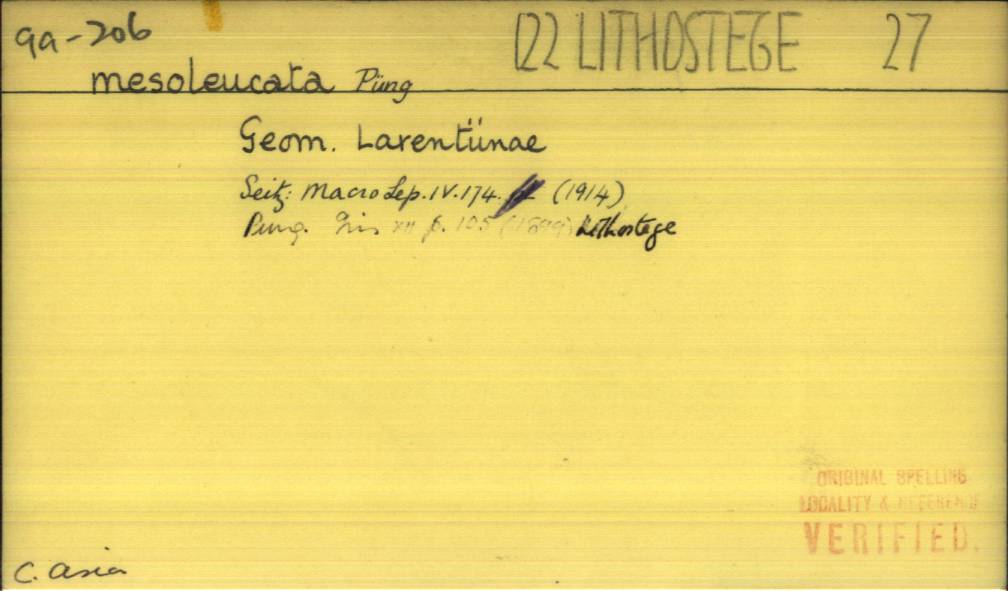 9a-206
122 LITHOSTEGE 27
mesoleucata Püng
Geom. Larentiinae
Seitz: MacroLep. IV. 174. (1914)
Pung. Iris xii p. 105 (1899) Lithostege
ORIGINAL SPELLING
LOCALITY & REFERENCE
VERIFIED.
C. Asia